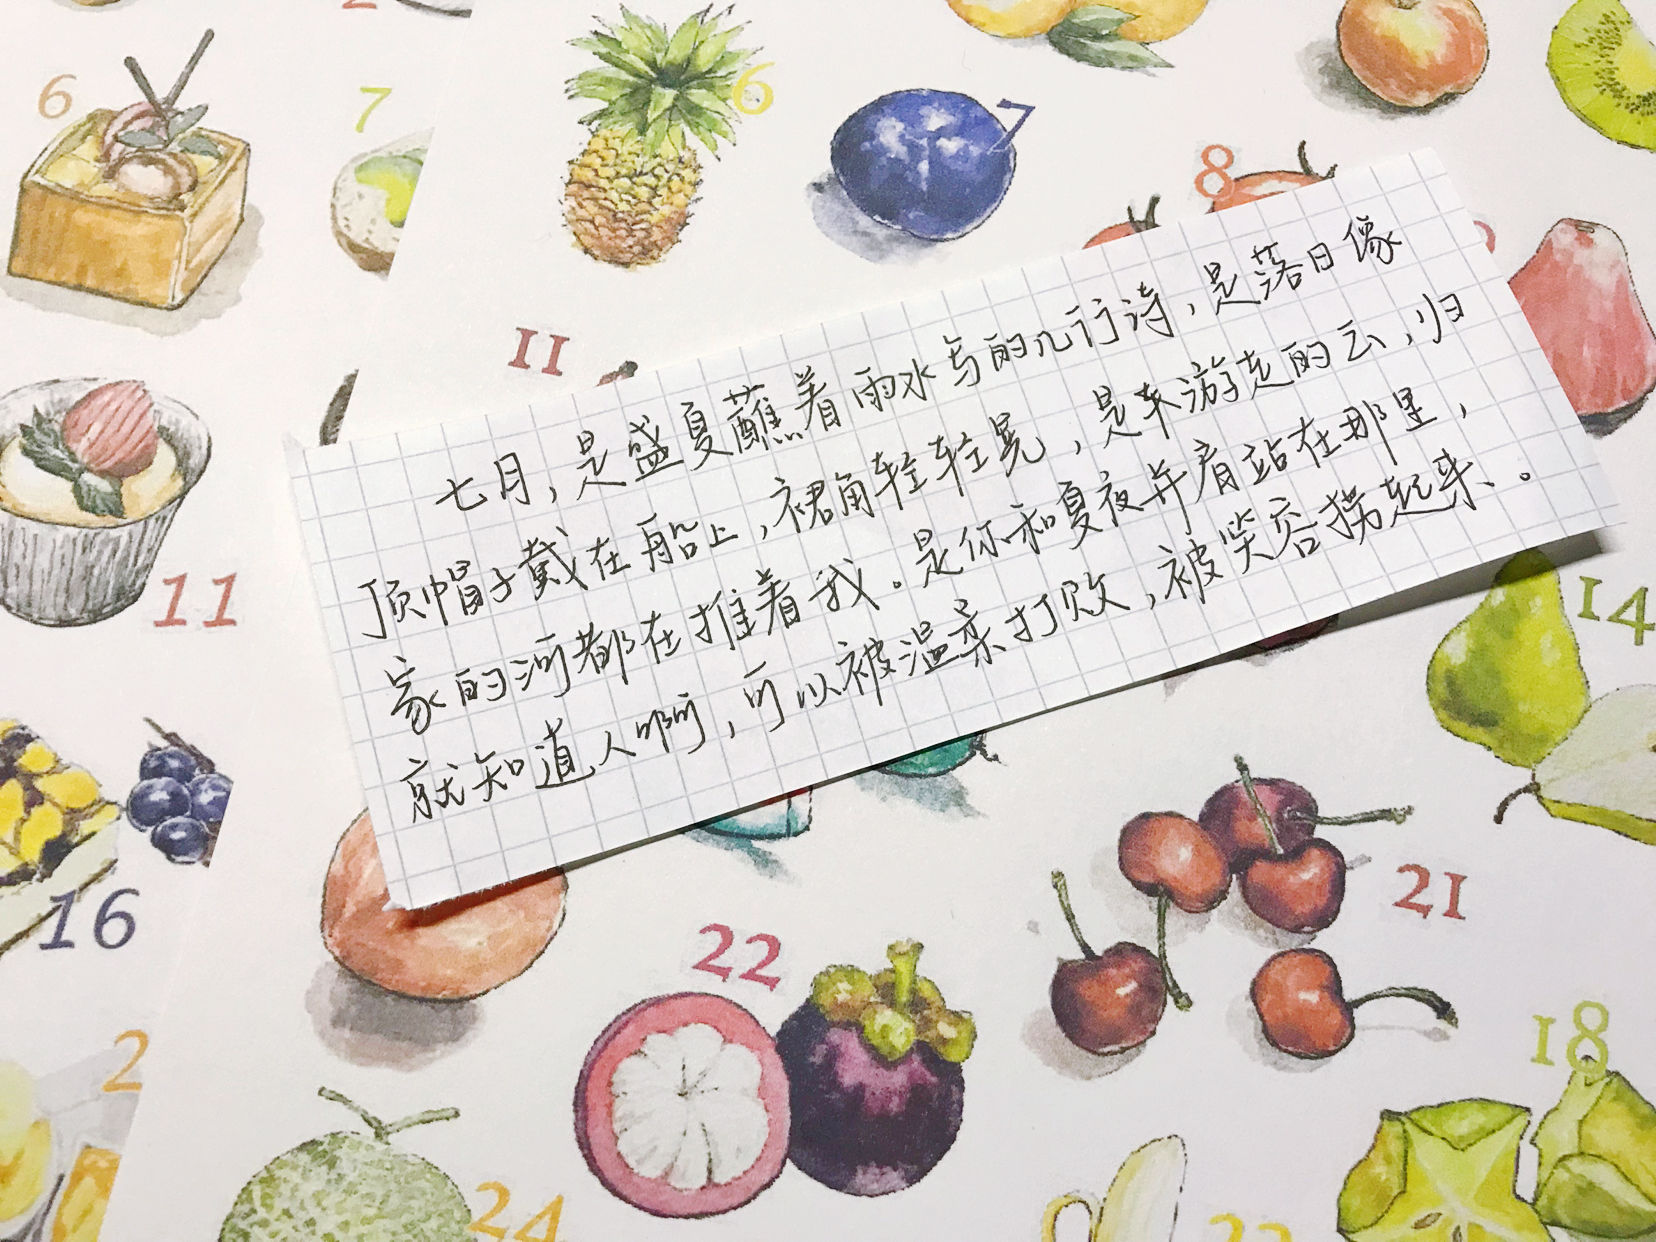 6
7
6
7
8
11
七月，是盛夏蘸着雨水写的几行诗，是落日像
顶帽子戴在船上，裙角轻轻晃，是朵游走的云，归
家的河都在推着我。是你和夏夜并肩站在那里，
就知道人啊，可以被温柔打败，被笑容捞起来。
11
14
16
21
22
18
24